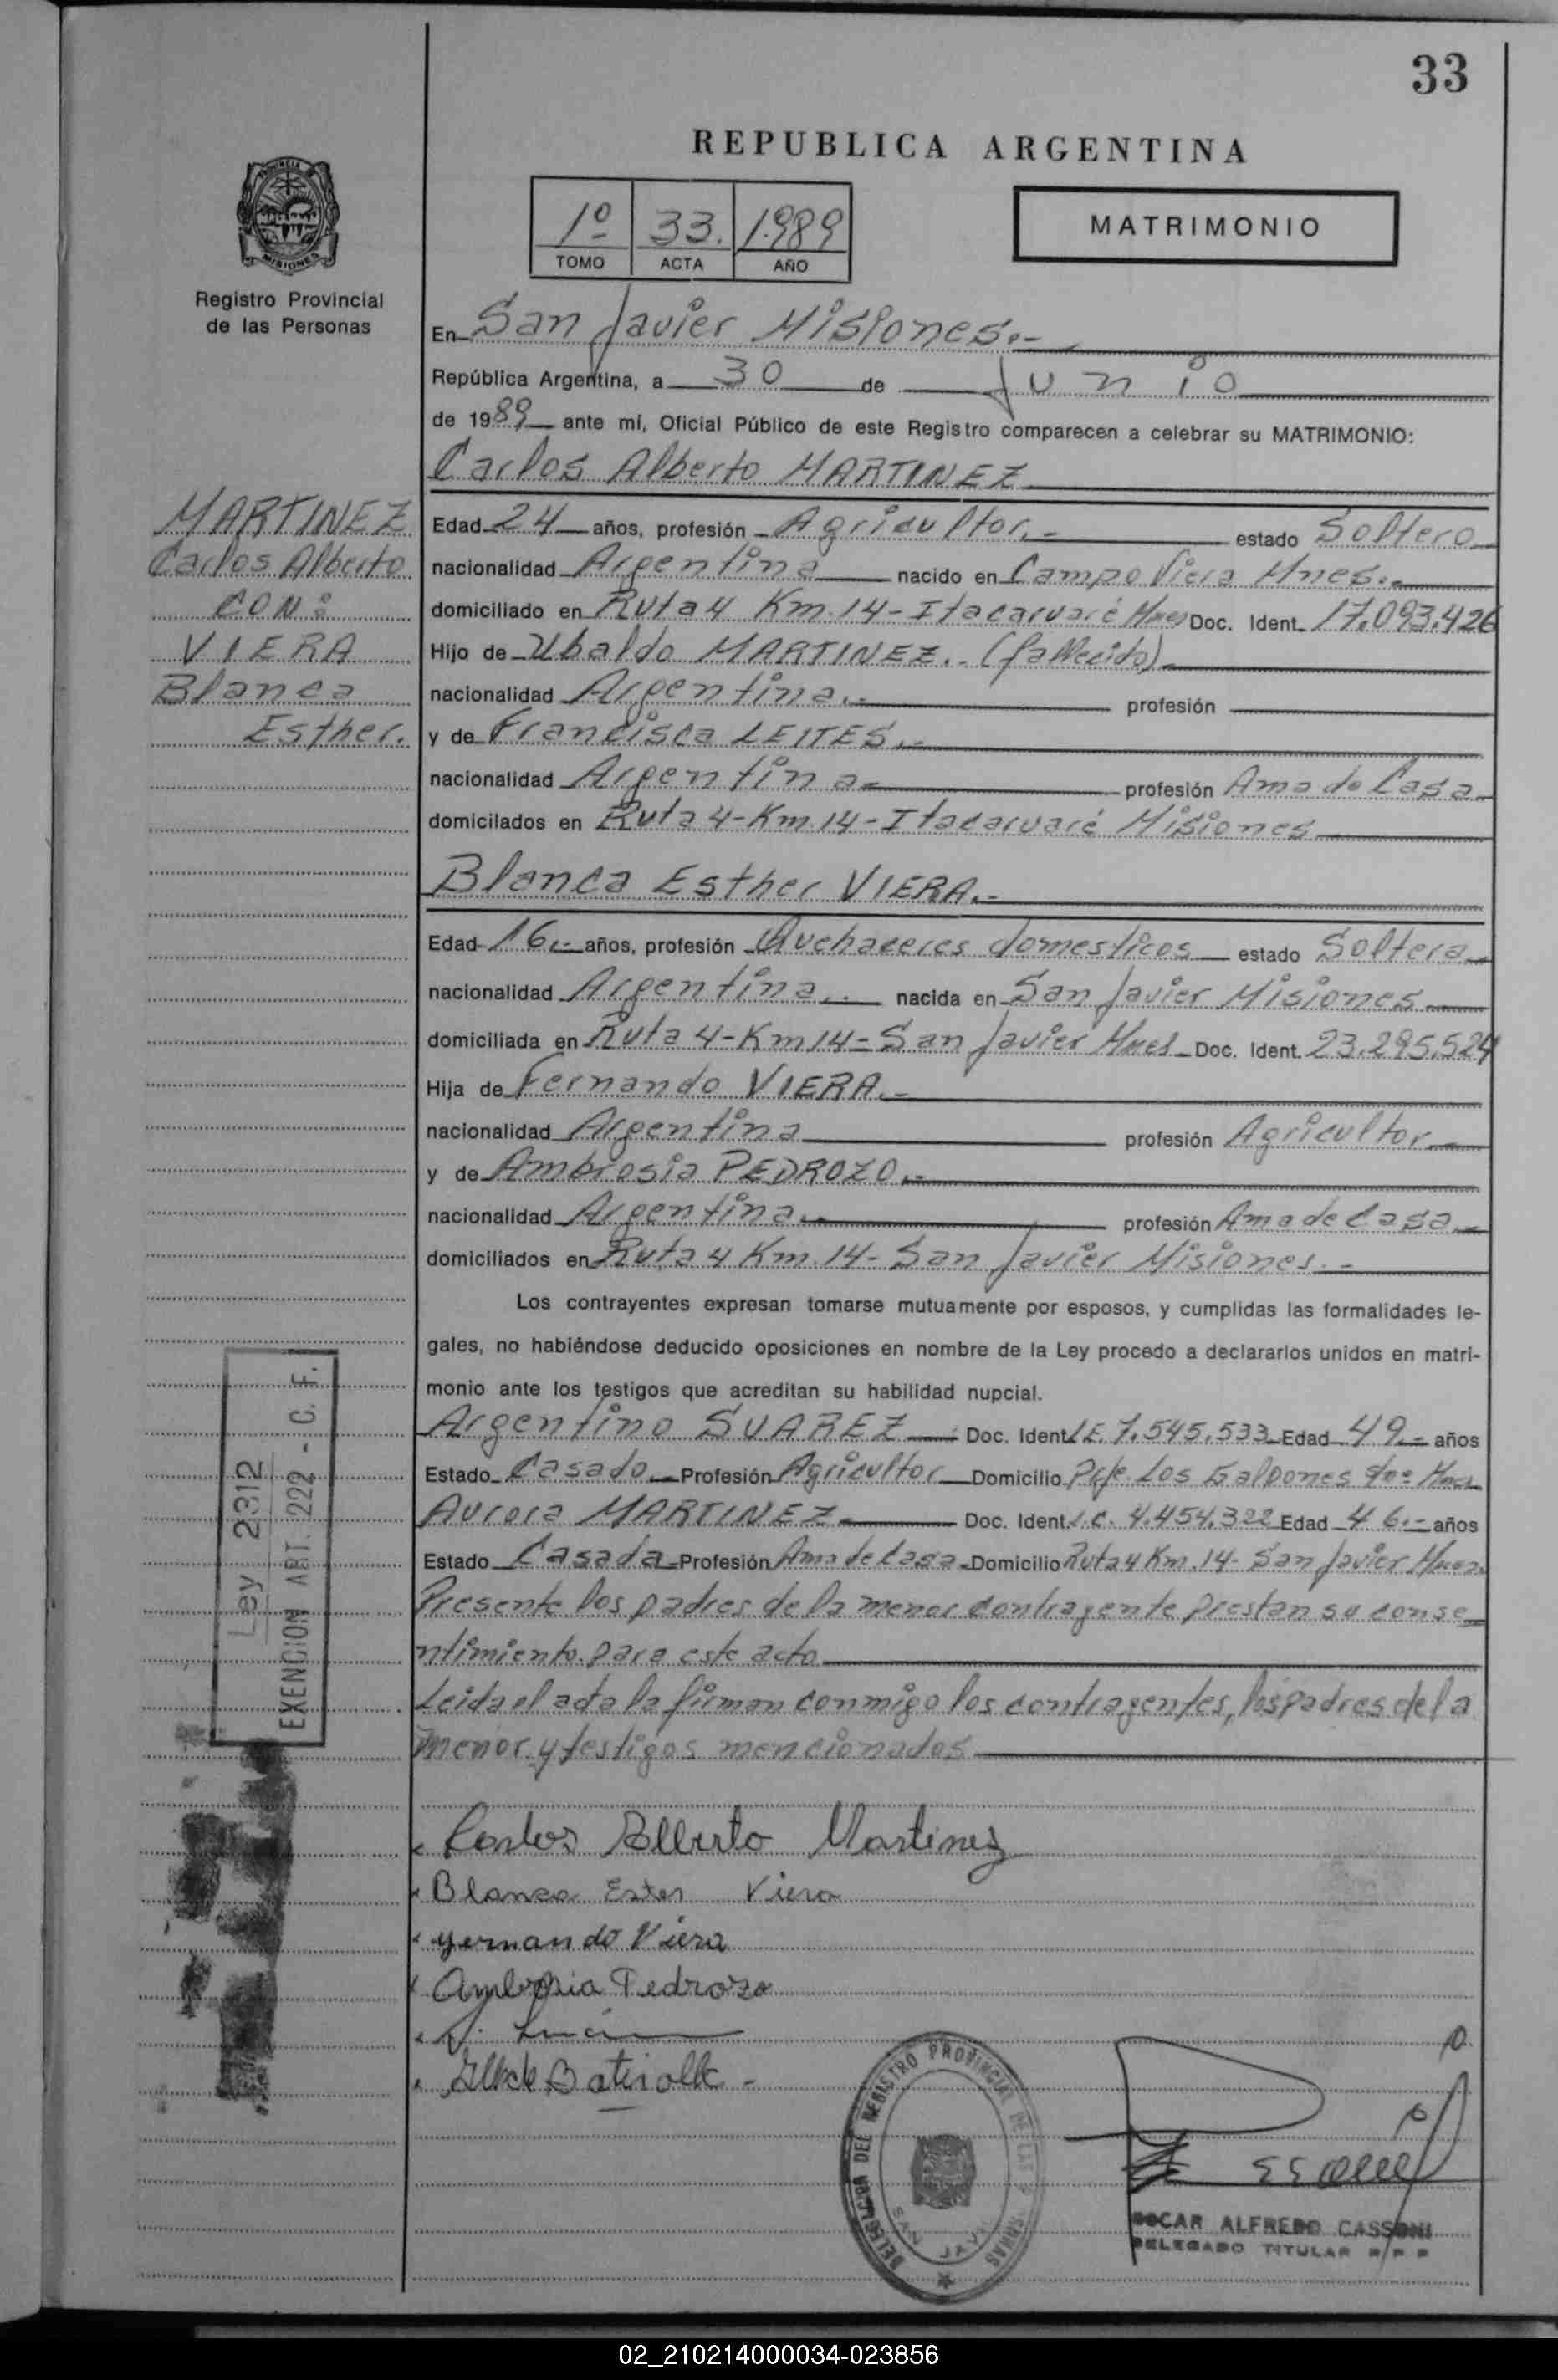 33
REPUBLICA ARGENTINA
1º 33. 1.989
TOMO ACTA AÑO
MATRIMONIO
PROVINCIA
MISIONES
Registro Provincial
de las Personas
En San Javier Misiones.-
República Argentina, a 30 de Junio
de 1989 ante mí, Oficial Público de este Registro comparecen a celebrar su MATRIMONIO:
Carlos Alberto MARTINEZ
MARTINEZ
Carlos Alberto
CON:
VIERA
Blanca
Esther.
Edad 24 años, profesión Agricultor.- estado Soltero
nacionalidad Argentina nacido en Campo Viera Mnes.-
domiciliado en Ruta 4 Km. 14- Itacaruaré Mnes Doc. Ident. 17.093.426
Hijo de Ubaldo MARTINEZ.. (fallecido)
nacionalidad Argentina.- profesión
y de Francisca LEITES.-
nacionalidad Argentina profesión Ama de Casa
domicilados en Ruta 4-Km.14-Itacaruaré Misiones
Blanca Esther VIERA.-
Edad 16.- años, profesión Quehaceres domesticos estado Soltera
nacionalidad Argentina.. nacida en San Javier Misiones
domiciliada en Ruta 4-Km 14-San Javier Mnes Doc. Ident. 23.295.524
Hija de Fernando VIERA.-
nacionalidad Argentina profesión Agricultor
y de Ambrosia PEDROZO.-
nacionalidad Argentina.- profesión Ama de Casa
domiciliados en Ruta 4 Km. 14- San Javier Misiones.-
Los contrayentes expresan tomarse mutuamente por esposos, y cumplidas las formalidades le-
gales, no habiéndose deducido oposiciones en nombre de la Ley procedo a declararlos unidos en matri-
monio ante los testigos que acreditan su habilidad nupcial.
Argentino SUAREZ Doc. Ident. L.E. 7.545.533 Edad 49.- años
Estado Casado Profesión Agricultor Domicilio Pje. Los Galpones Mnes
Aurora MARTINEZ Doc. Ident. L.C. 4.454.322 Edad 46.- años
Estado Casada Profesión Ama de Casa Domicilio Ruta 4 Km. 14- San Javier Mnes
Presente los padres de la menor contrayente prestan su conse
ntimiento para este acto
Leida el acta la firman conmigo los contrayentes, los padres de la
menor y testigos mencionados
Ley 2312
EXENCION ART. 222 - C. F.
Carlos Alberto Martinez
Blanca Ester Viera
Fernando Viera
Ambrosia Pedrozo
DELEGACION DEL REGISTRO PROVINCIAL DE LAS PERSONAS
SAN JAVIER
OSCAR ALFREDO CASSONI
DELEGADO TITULAR R P P
02_210214000034-023856